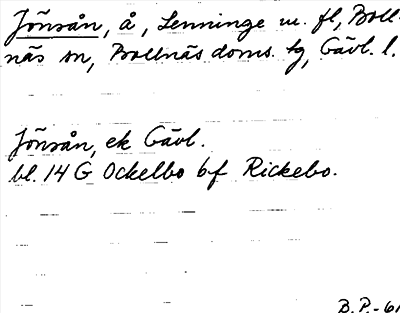 Jönsån, å, Lenninge m. fl, Boll-
näs sn, Bollnäs doms. tg, Gävl. l.
Jönsån, ek Gävl.
bl. 14 G Ockelbo bf Rickebo.
B.P.-61